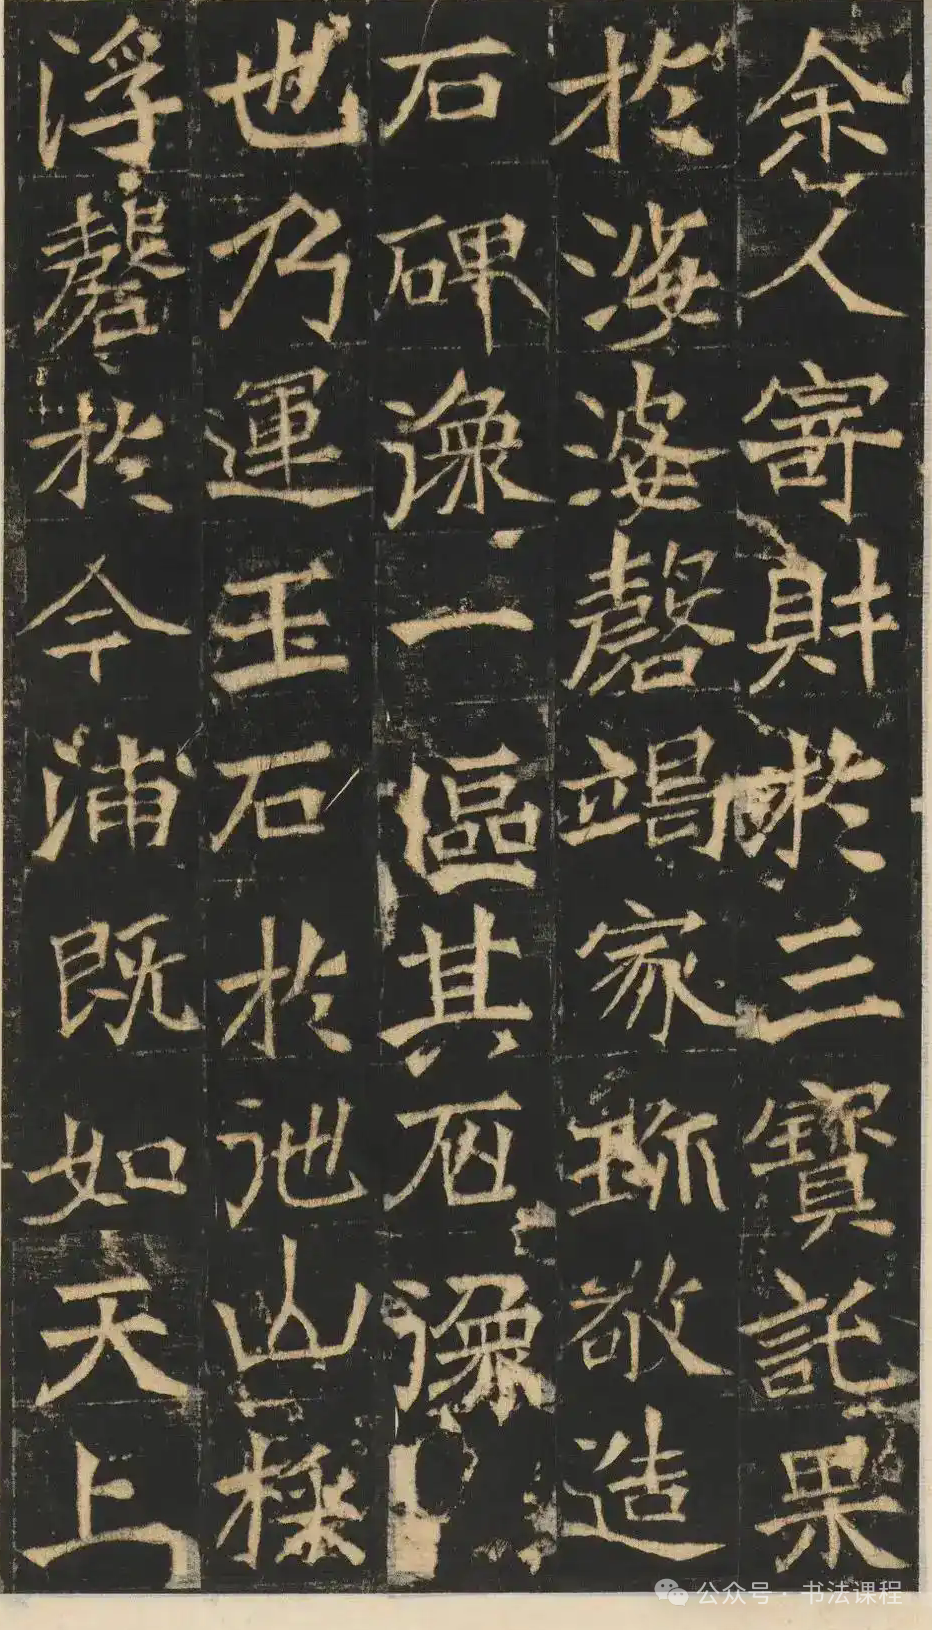 余人寄財於三寶託果
於娑婆磬竭家珎敬造
石碑像一區其石像
也乃運玉石於他山採
浮磬於今浦既如天上
公众号·书法课程